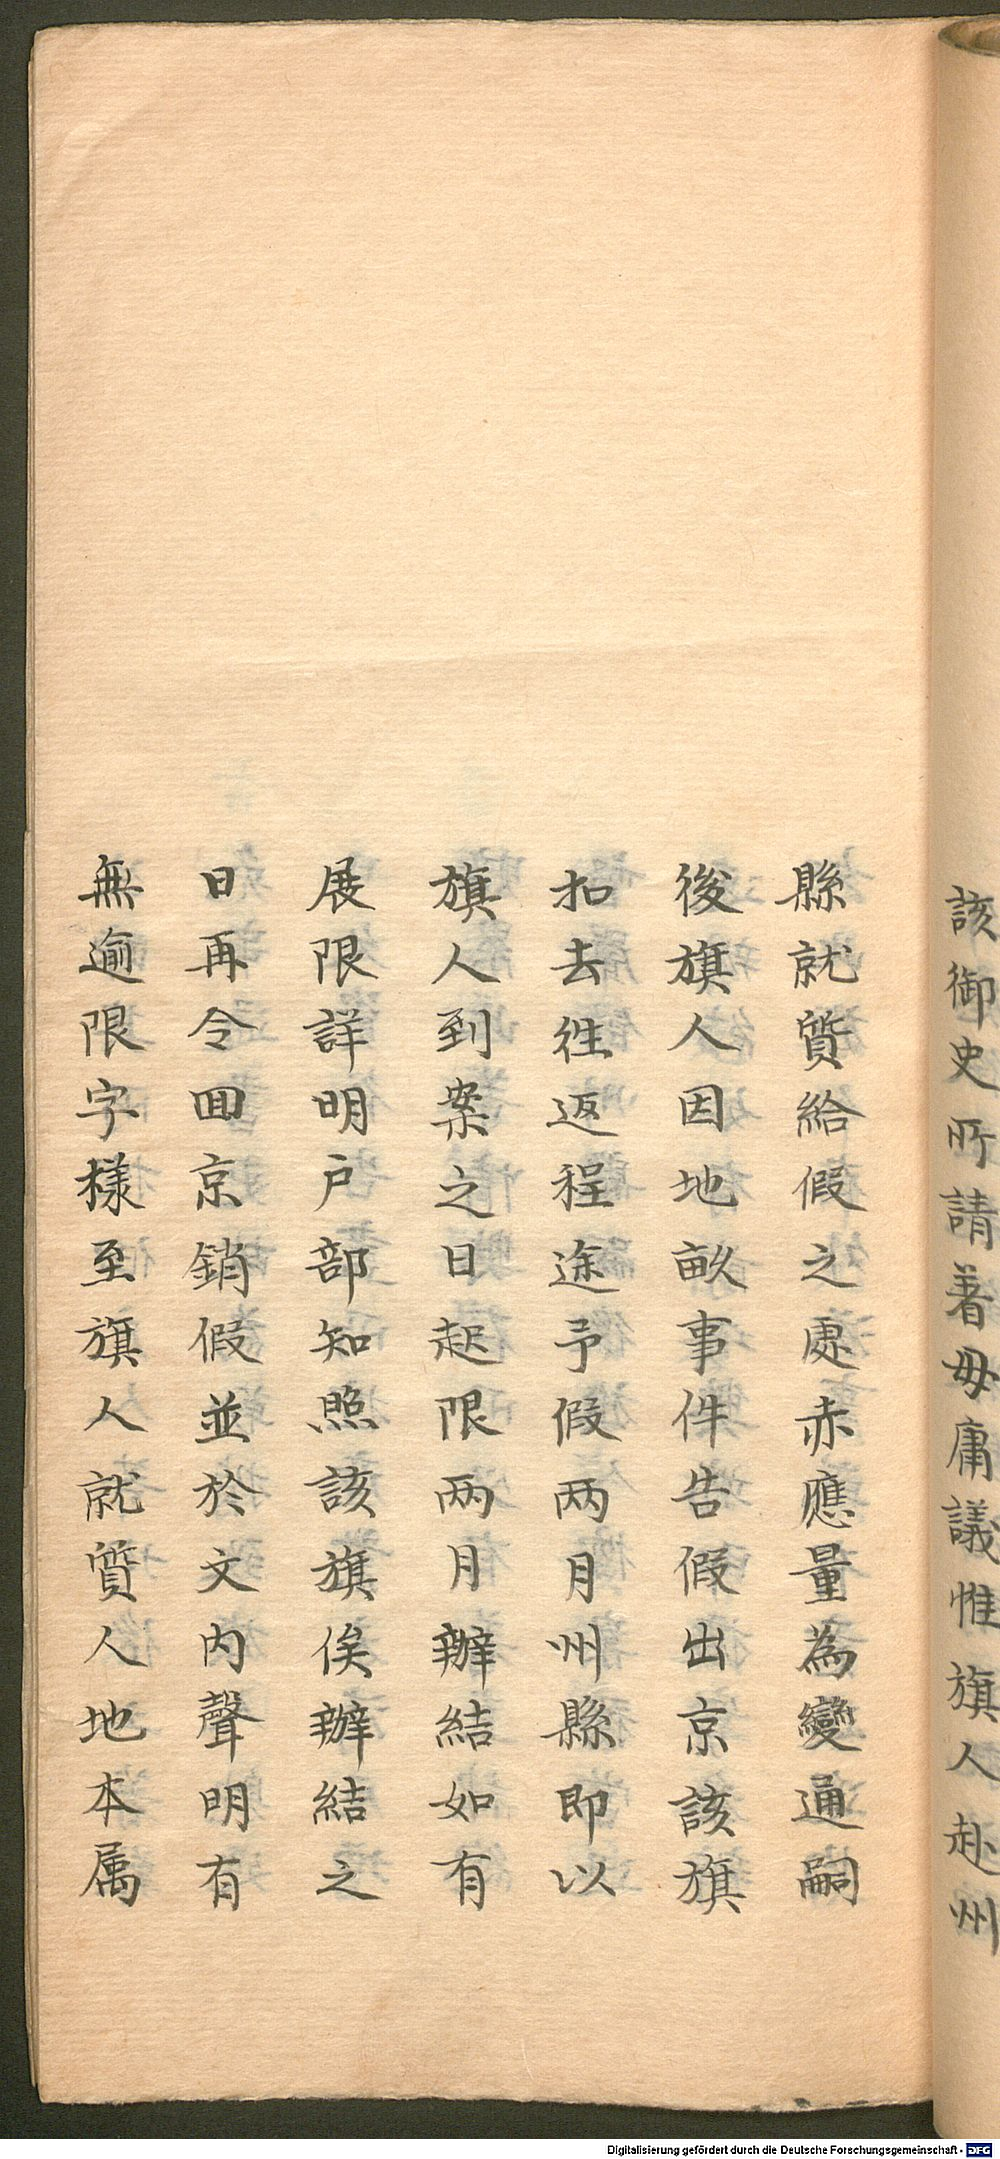 該御史所請著毋庸議惟旗人赴州
縣就質給假之處赤應量為變通嗣
後旗人因地畝事件告假出京該旗
扣去徃返程途予假两月州縣即以
旗人到案之日起限两月辦結如有
展限詳明户部知照該旗俟辦結之
日再令囬京銷假並於文内聲明有
無逾限字樣至旗人就質人地本属
Digitalisierung gefördert durch die Deutsche Forschungsgemeinschaft - DFG